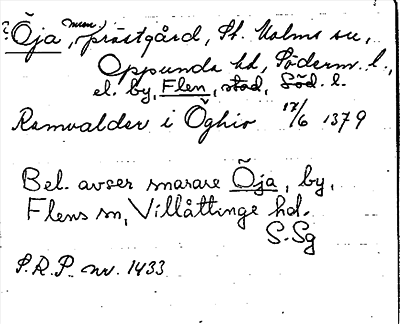 ? Öja, prästgård, St. Malms sn,
Oppunda hd, Söderm. l.,
el. by, Flen, stad, Söd. l.
Ramvalder i Öghio 17/6 1379
Bel. avser snarare Öja, by,
Flens sn, Villåttinge hd.
S. Sg
S.R.P. nr. 1433